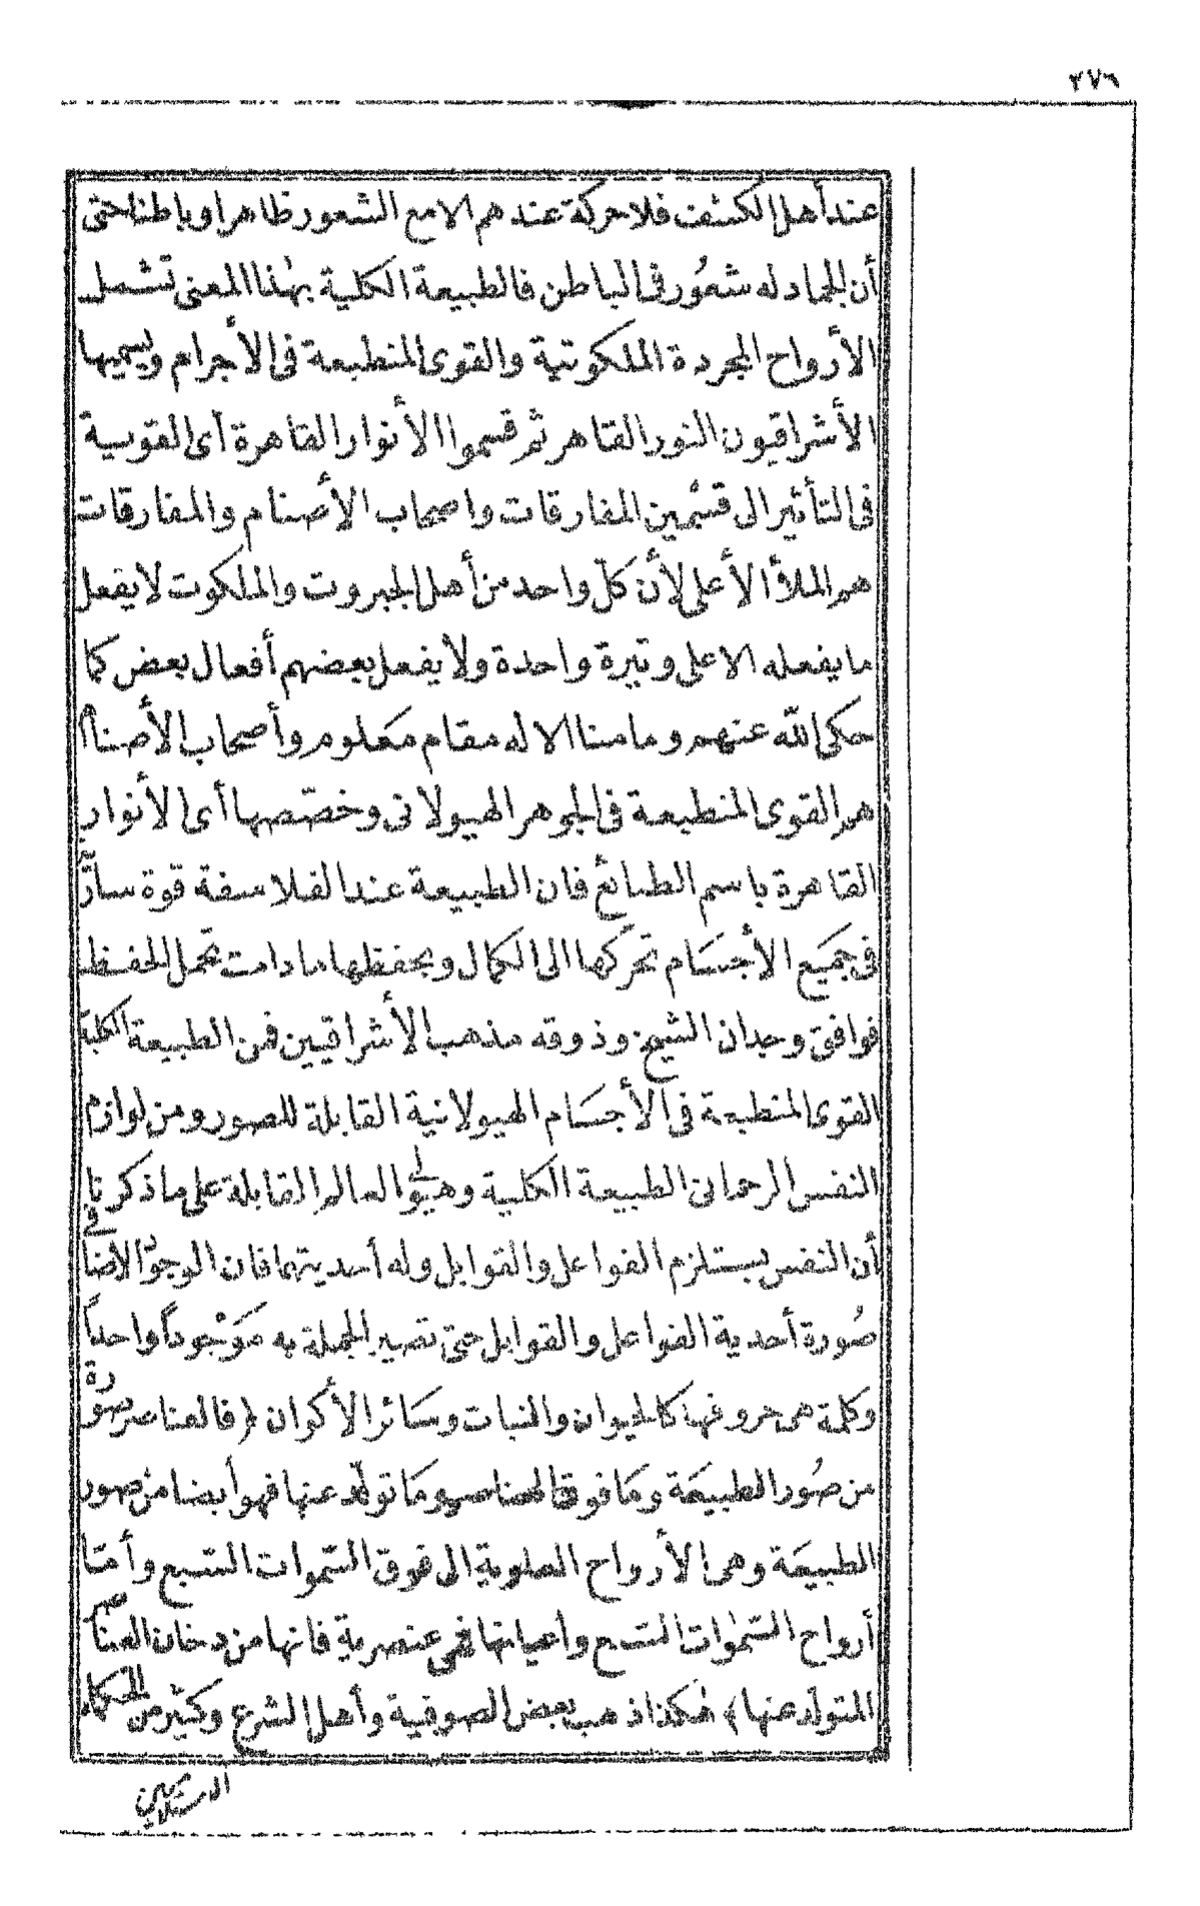 ٢٧٦
عند أهل الكشف فلا حركة عندهم الا مع الشعور ظاهرا وباطنا حتى
أن الجماد له شعُور فى الباطن فالطبيعة الكلية بهٰذا المعنى تشمل
الأرواح المجردة الملكوتية والقوى المنطبعة فى الأجرام ويسميها
الأشراقيون النور القاهر ثم قسموا الأنوار القاهرة أى القوية
فى التأثير الى قسْمين المفارقات واصحاب الأصْنام والمفارقات
هم الملأ الأعلى لأن كلّ واحد من أهل الجبروت والملكوت لا يفعل
ما يفعله الا على وتيرة واحدة ولا يفعل بعضهم أفعال بعض كما
حكى الله عنهم وما منا الا له مقام مَعلوم وأصحاب الأصنام
هم القوى المنطبعة فى الجوهر الهيولانى وخصّصها أى الأنوار
القاهرة باسم الطبائع فان الطبيعة عند الفلاسفة قوة سارية
فى جَميَع الأجسَام تحركها الى الكمال ويحفظها ما دامت تحمل الحفظ
فوافق وجدان الشيخ وذوقه مذهب الأشراقيين فمن الطبيعة الكلية
القوى المنطبعة فى الأجسَام الهيولانية القابلة للصور ومن لوازم
النفس الرحمانى الطبيعة الكلية وهيولى العالم القابلة على ما ذكرنا
أن النفس يستلزم الفواعل والقوابل وله أحديتهما فان الوجود الاضافى
صُورة أحدية الفواعل والقوابل حتى تصير الجملة به مَوْجوداً واحداً
وكلمة هى حروفها كالحيوان والنبات وسَائر الأكوان ﴿فالعناصر صورة
من صُور الطبيعَة ومَا فوق العناصر ومَا تولّد عنها فهو أيضا من صور
الطبيعَة وهى الأرواح العلوية الى فوق السّموات السّبع وأمّا
أرواح السّمٰوات السّبع وأعيانها فهى عنصرية فانها من دخان العناصر
المتولّد عنها﴾ هٰكذا ذهب بعض الصوفية وأهل الشرع وكثير من الحكماء
الاسلاميين